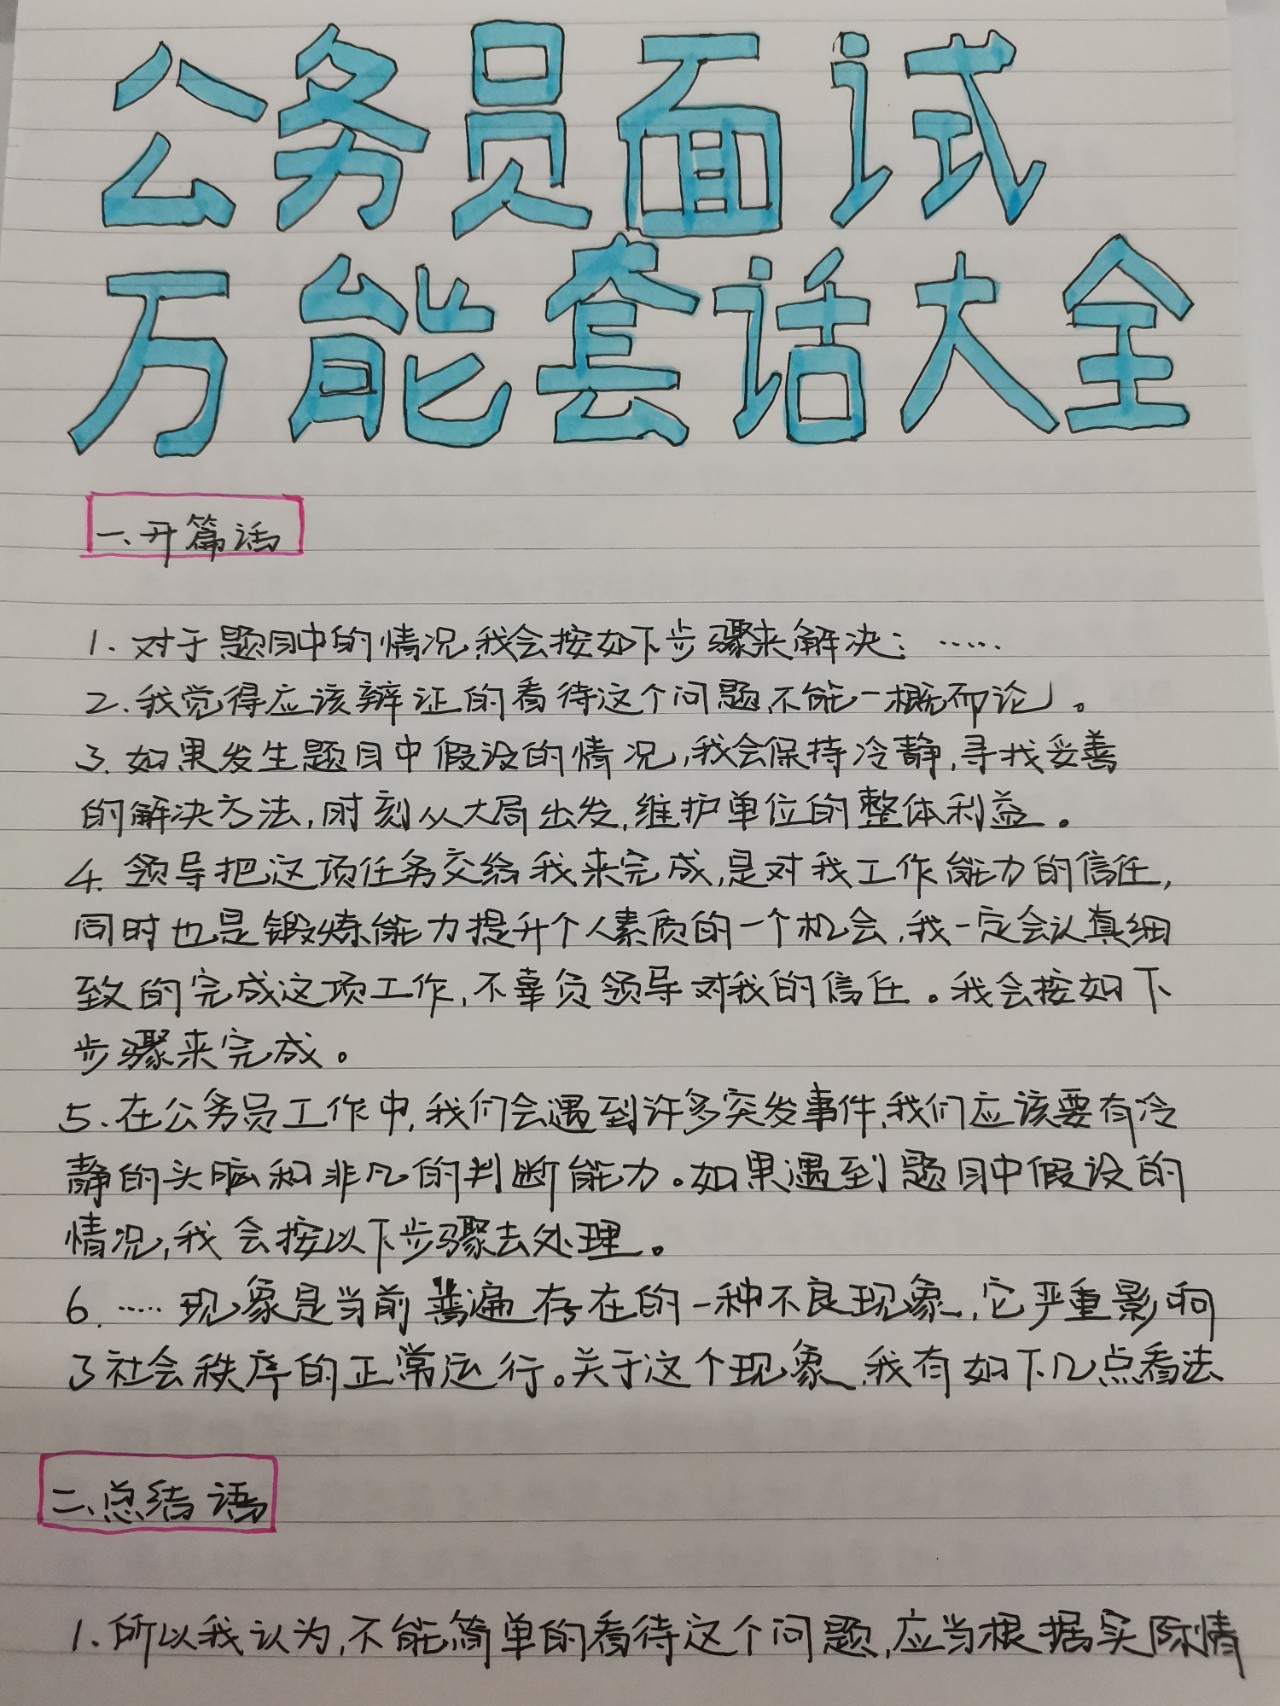 公务员面试
万能套话大全
一、开篇话
1. 对于题目中的情况,我会按如下步骤来解决：……
2. 我觉得应该辨证的看待这个问题,不能一概而论」。
3. 如果发生题目中假设的情况,我会保持冷静,寻找妥善
的解决方法,时刻从大局出发,维护单位的整体利益。
4. 领导把这项任务交给我来完成,是对我工作能力的信任,
同时也是锻炼能力提升个人素质的一个机会,我一定会认真细
致的完成这项工作,不辜负领导对我的信任。我会按如下
步骤来完成。
5. 在公务员工作中,我们会遇到许多突发事件,我们应该要有冷
静的头脑和非凡的判断能力。如果遇到题目中假设的
情况,我会按以下步骤去处理。
6. ……现象是当前普遍存在的一种不良现象,它严重影响
了社会秩序的正常运行。关于这个现象,我有如下几点看法
二、总结语
1. 所以我认为,不能简单的看待这个问题,应当根据实际情